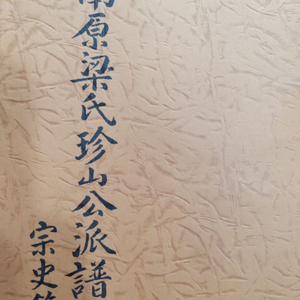 南原梁氏珍山公派譜
宗史篇